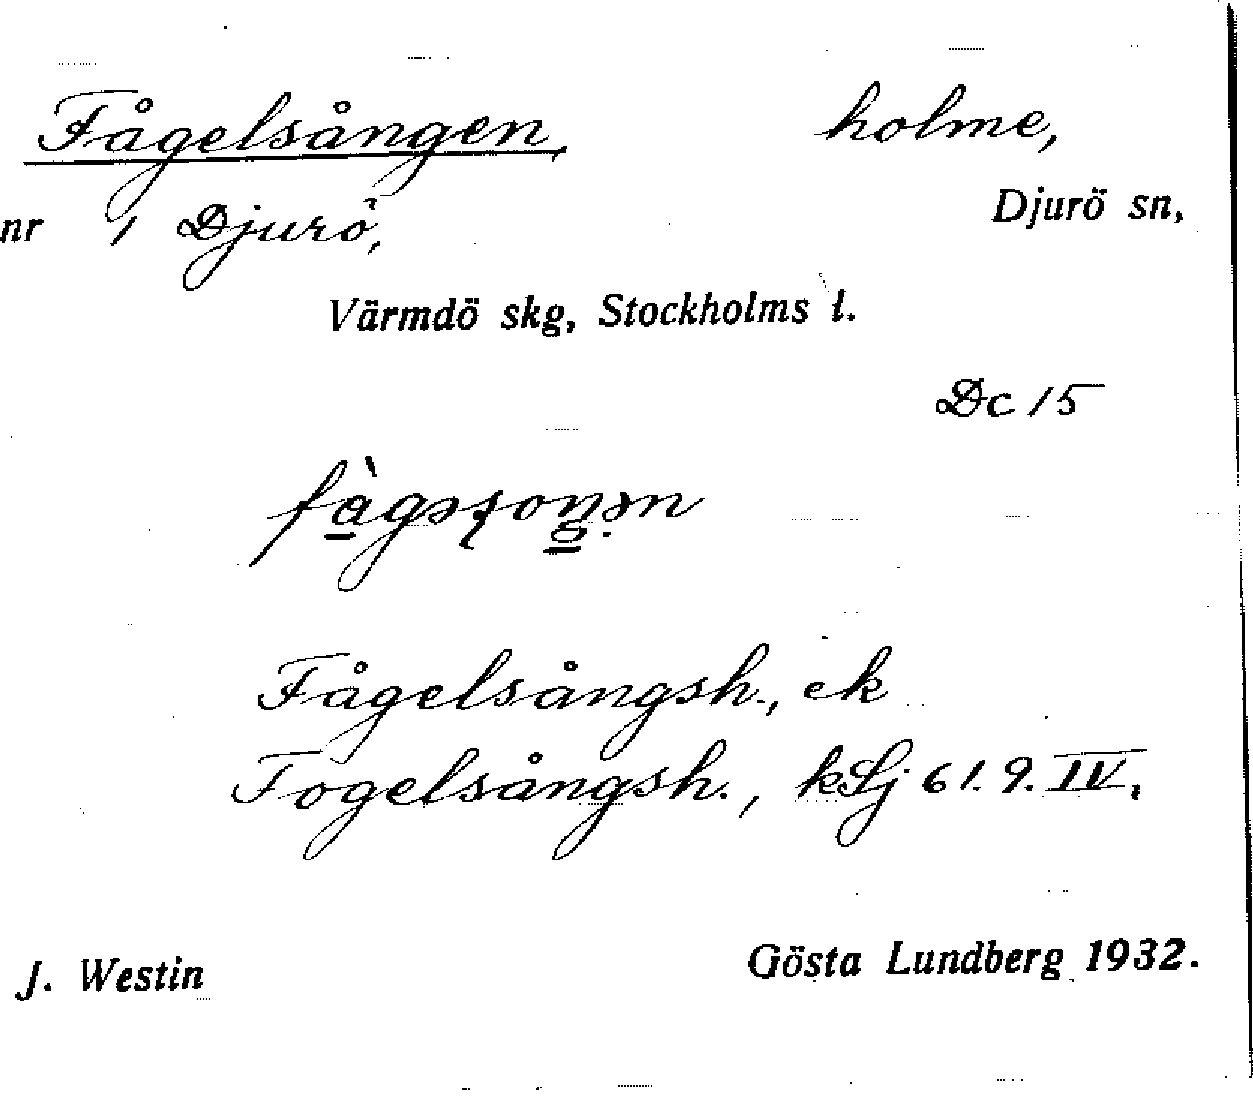 Fågelsången, holme,
nr 1 Djurö, Djurö sn,
Värmdö skg, Stockholms l.
Dc 15
Fågelsångsh., ek
Fogelsångsh., kSj 61.9.IV.
J. Westin Gösta Lundberg 1932.